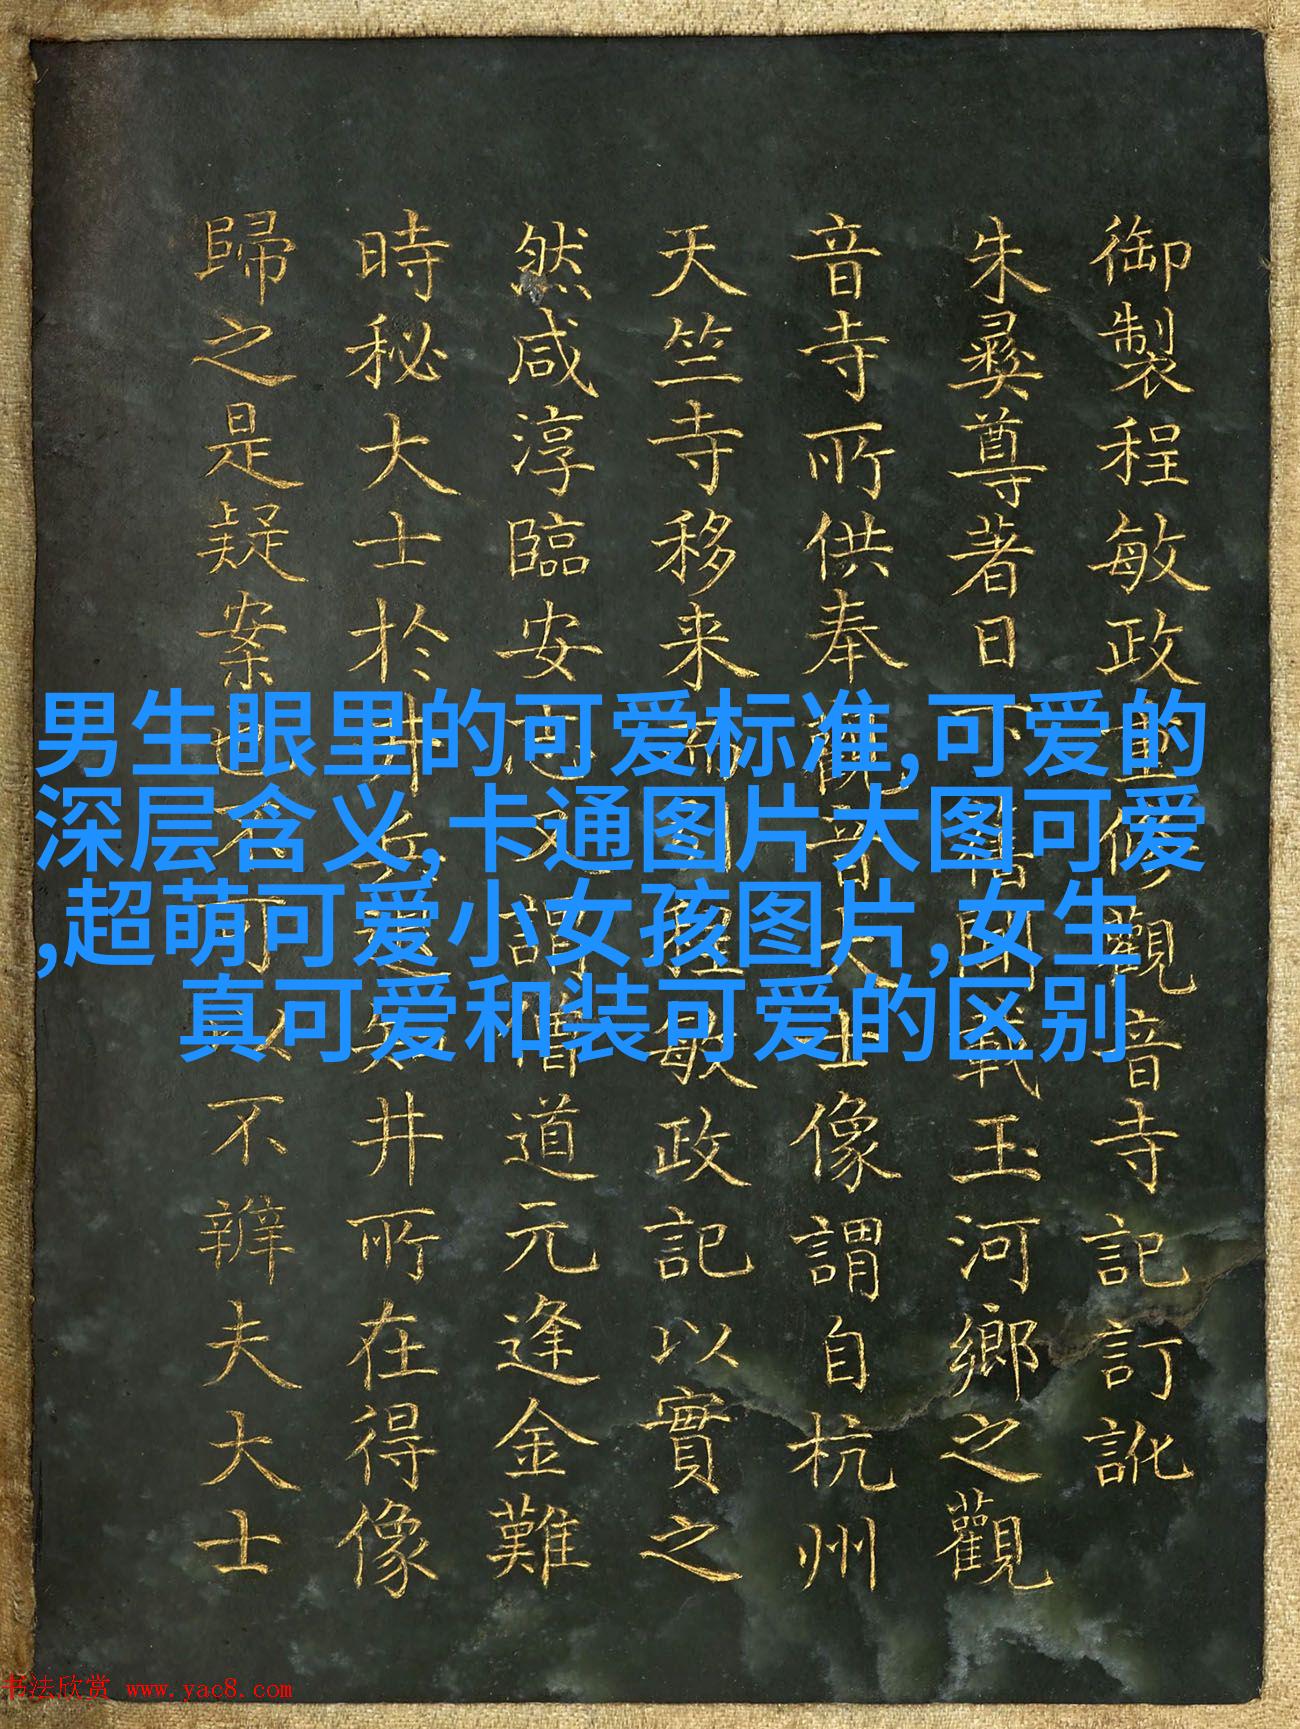 御製程敏政重修觀音寺記訂訛
朱彛尊著日下舊聞載玉河鄉之觀
音寺所供奉觀音大士像謂自杭州
天竺寺移来而引程敏政記以實之
然咸淳臨安志又謂僧道元逢金難
時秘大士於井知井所在得像
歸之是疑案也不可以不辨夫大士
男生眼里的可爱标准,可爱的
深层含义,卡通图片大图可爱
,超萌可爱小女孩图片,女生
真可爱和装可爱的区别
书法欣赏 www.yac8.com